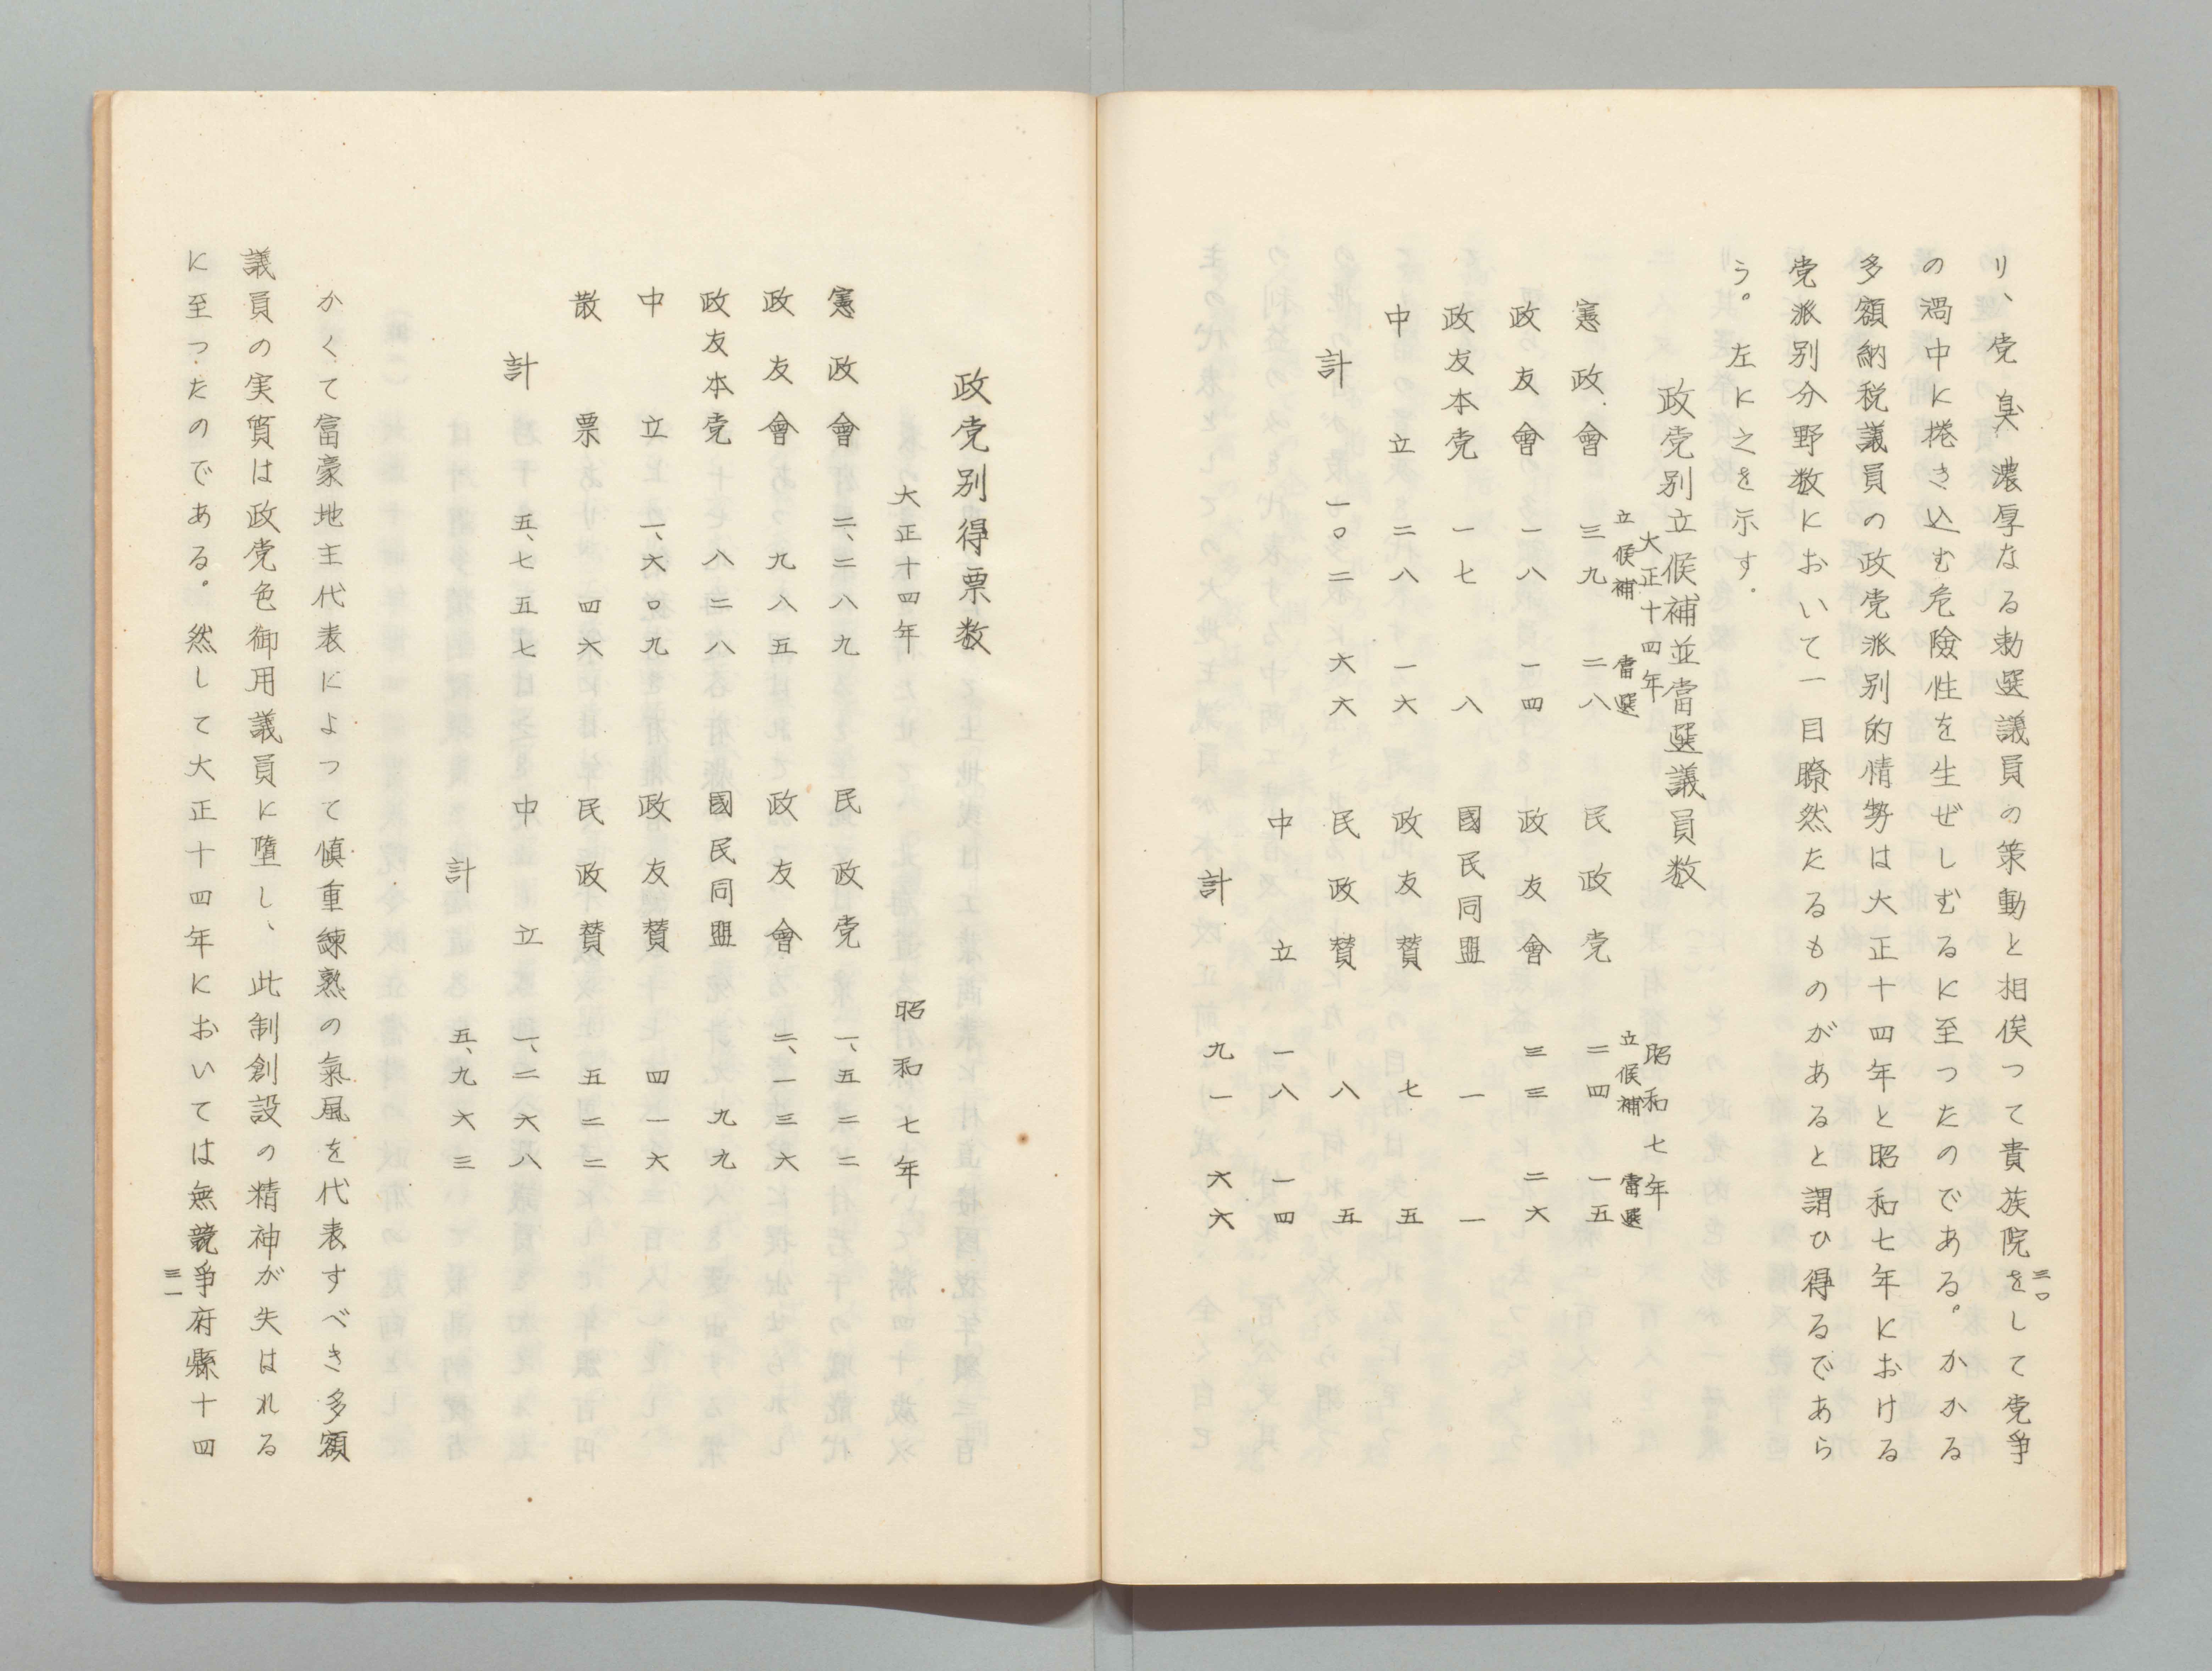 り、党臭濃厚なる勅選議員の策動と相俟って貴族院をして党争
の渦中に捲き込む危險性を生ぜしむるに至つたのである。かかる
多額納税議員の政党派別的情勢は大正十四年と昭和七年における
党派別分野数において一目瞭然たるものがあると謂ひ得るであら
う。左に之を示す.
政党別立候補並當選議員数
大正十四年 昭和七年
立候補 當選 立候補 當選
憲政會 三九 二八 民政党 二四 一五
政友會 一八 一四 政友會 三三 二六
政友本党 一七 八 國民同盟 一 一
中立 二八 一六 政友賛 七 五
計 一〇二 六六 民政賛 八 五
中立 一八 一四
計 九一 六六
三〇
政党別得票数
大正十四年 昭和七年
憲政會 二、二八九 民政党 一、五二二
政友會 九八五 政友會 二、一三六
政友本党 八二八 國民同盟 九九
中立 一、六〇九 政友賛 四一六
散票 四六 民政賛 五二二
計 五、七五七 中立 一、二六八
計 五、九六三
かくて富豪地主代表によつて愼重練熟の氣風を代表すべき多額
議員の実質は政党色御用議員に墮し、此制創設の精神が失はれる
に至つたのである。然して大正十四年においては無競争府縣十四
三一